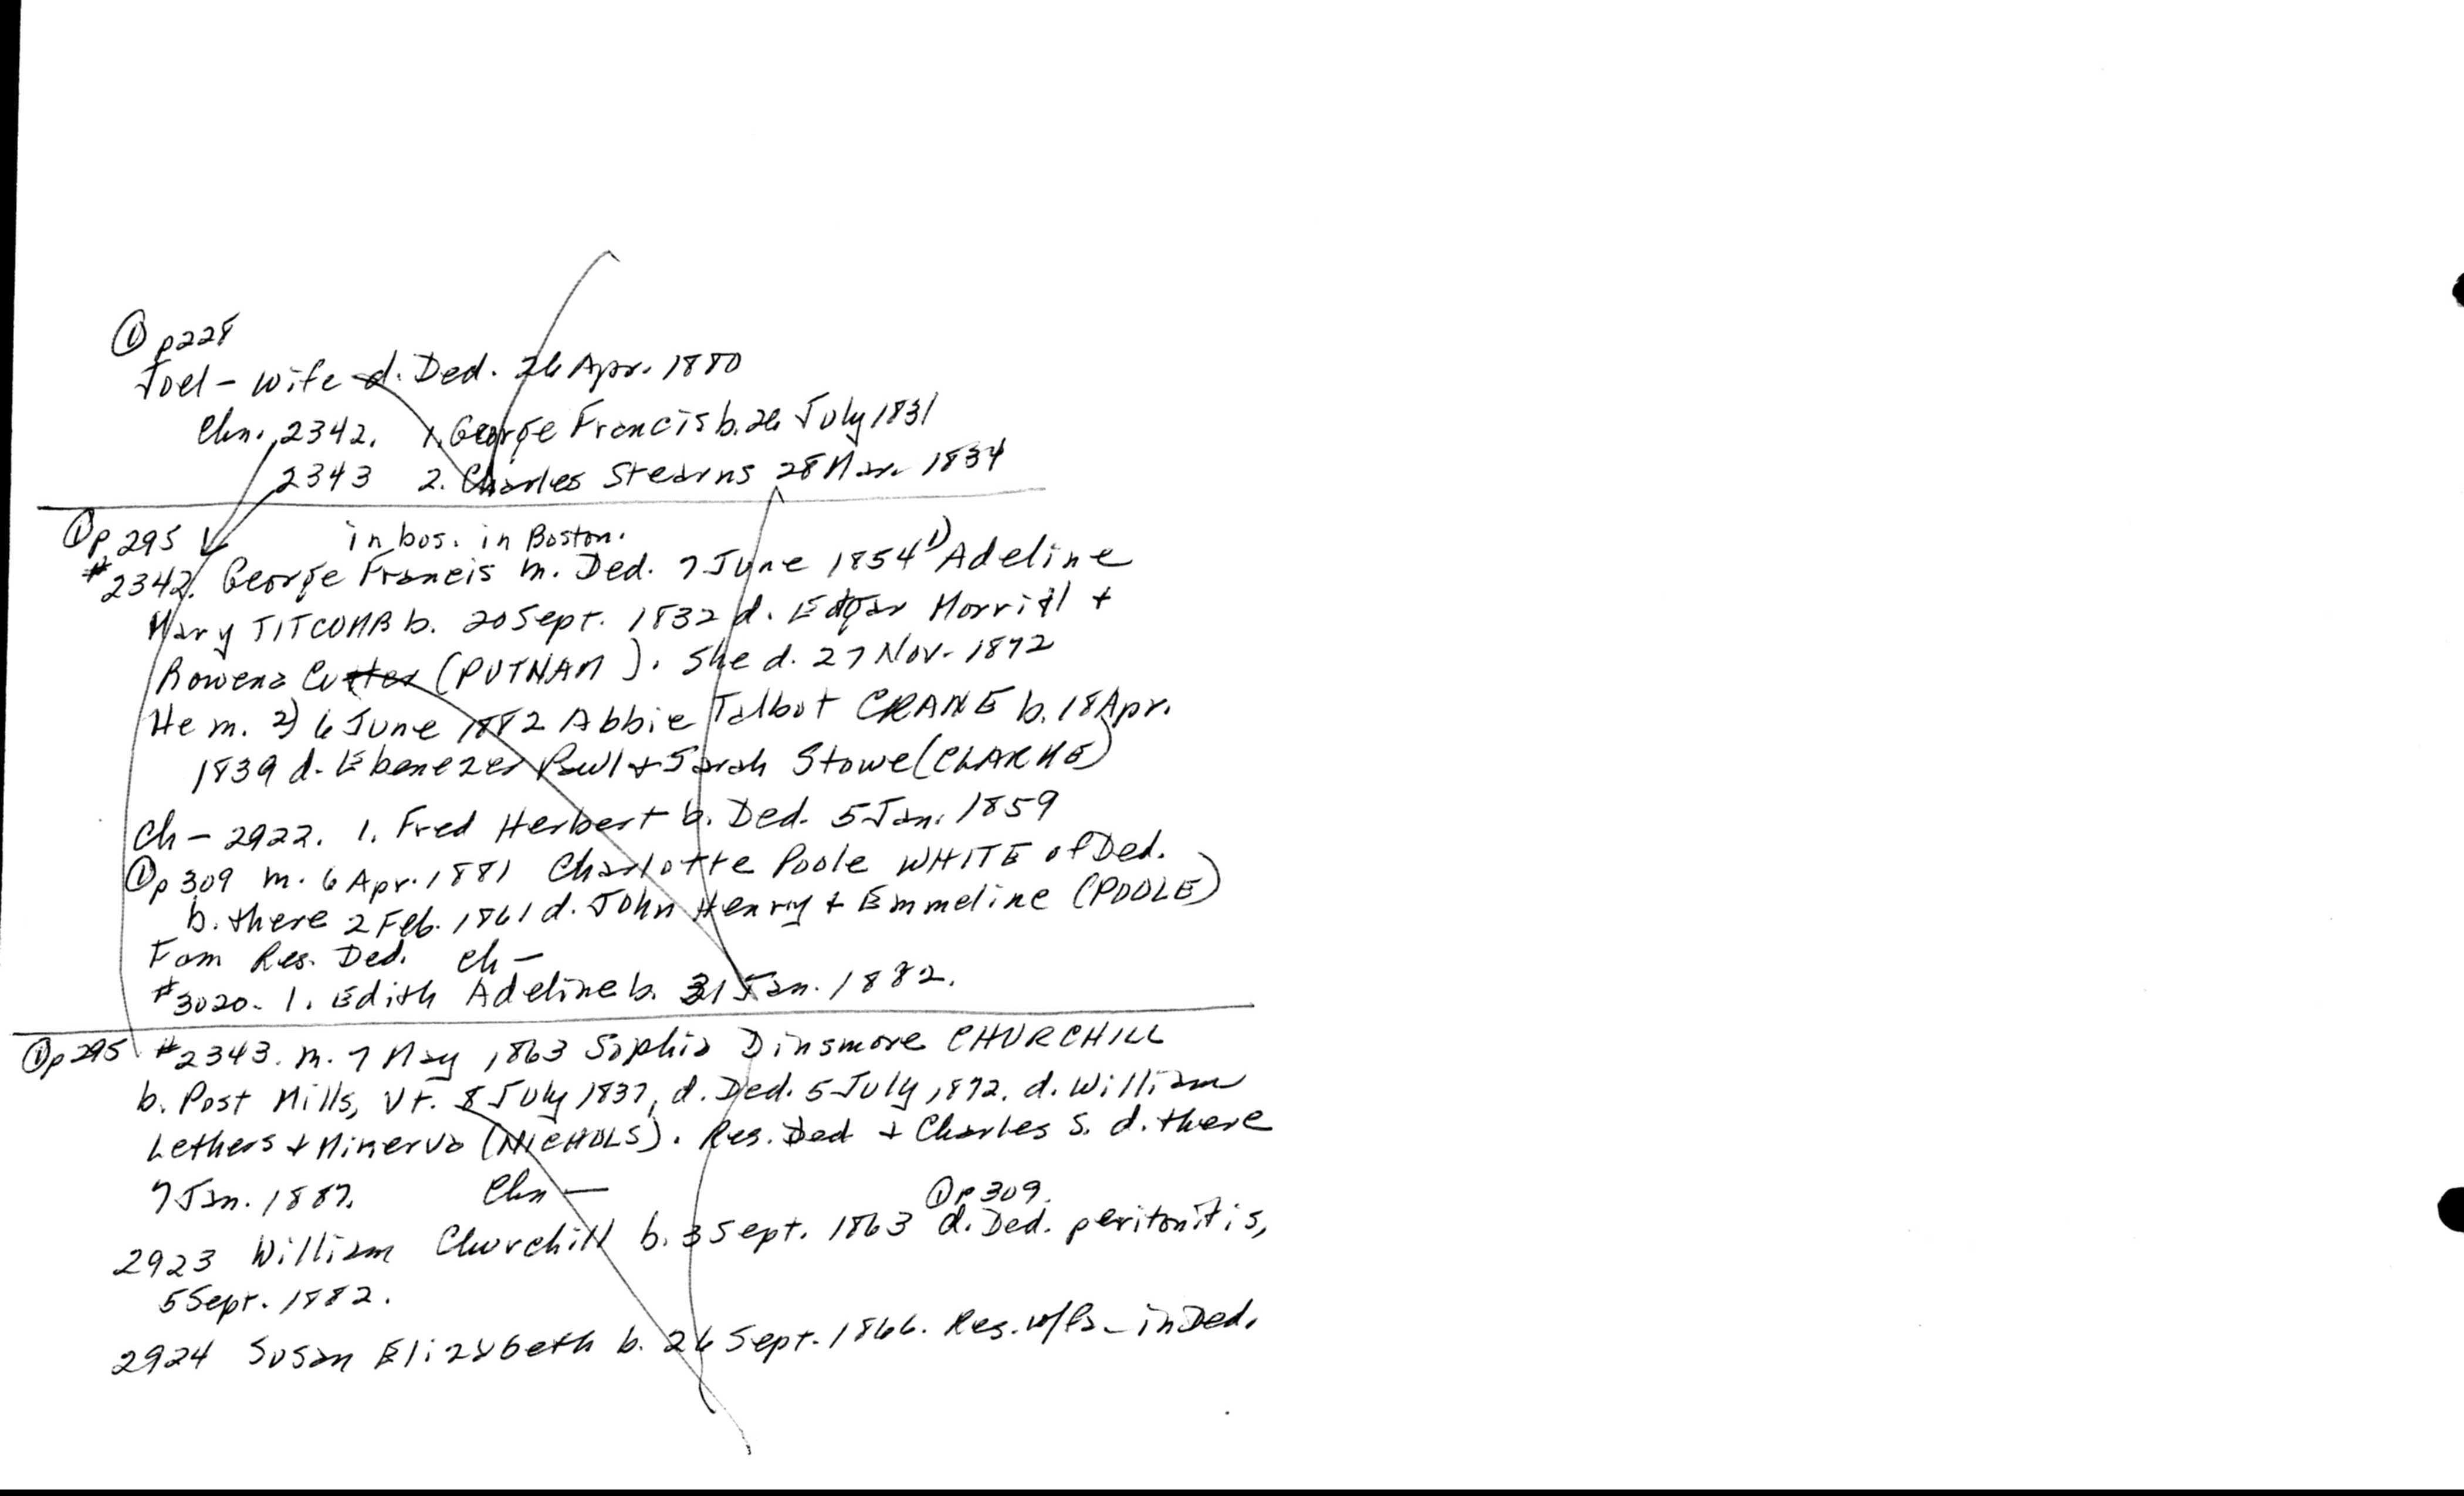 ① p228
Joel - wife d. Ded. 26 Apr. 1880
Chn. 2342. 1. George Francis b. 26 July 1831
2343 2. Charles Stearns 28 Mar. 1834
① p. 295 in bos. in Boston.
#2342. George Francis m. Ded. 7 June 1854 1) Adeline
Mary TITCOMB b. 20 Sept. 1832 d. Edgar Morrill +
Rowena Cutter (PUTNAM). She d. 27 Nov. 1872
He m. 2) 6 June 1882 Abbie Talbot CRANE b. 18 Apr.
1839 d. Ebenezer Paul + Sarah Stowe (CLARKE)
Ch - 2922. 1. Fred Herbert b. Ded. 5 Jan. 1859
① p 309 m. 6 Apr. 1881 Charlotte Poole WHITE of Ded.
b. there 2 Feb. 1861 d. John Henry + Emmeline (POOLE)
Fam Res. Ded. Ch -
#3020. 1. Edith Adeline b. 31 Jan. 1882.
① p 295 #2343. m. 7 May 1863 Sophia Dinsmore CHURCHILL
b. Post Mills, Vt. 8 July 1837, d. Ded. 5 July 1872. d. William
Lethers + Minerva (NICHOLS). Res. Ded + Charles S. d. there
7 Jan. 1887. Chn -
① p 309.
2923 William Churchill b. 3 Sept. 1863 d. Ded. peritonitis,
5 Sept. 1882.
2924 Susan Elizabeth b. 26 Sept. 1866. Res. w/Pa - in Ded.